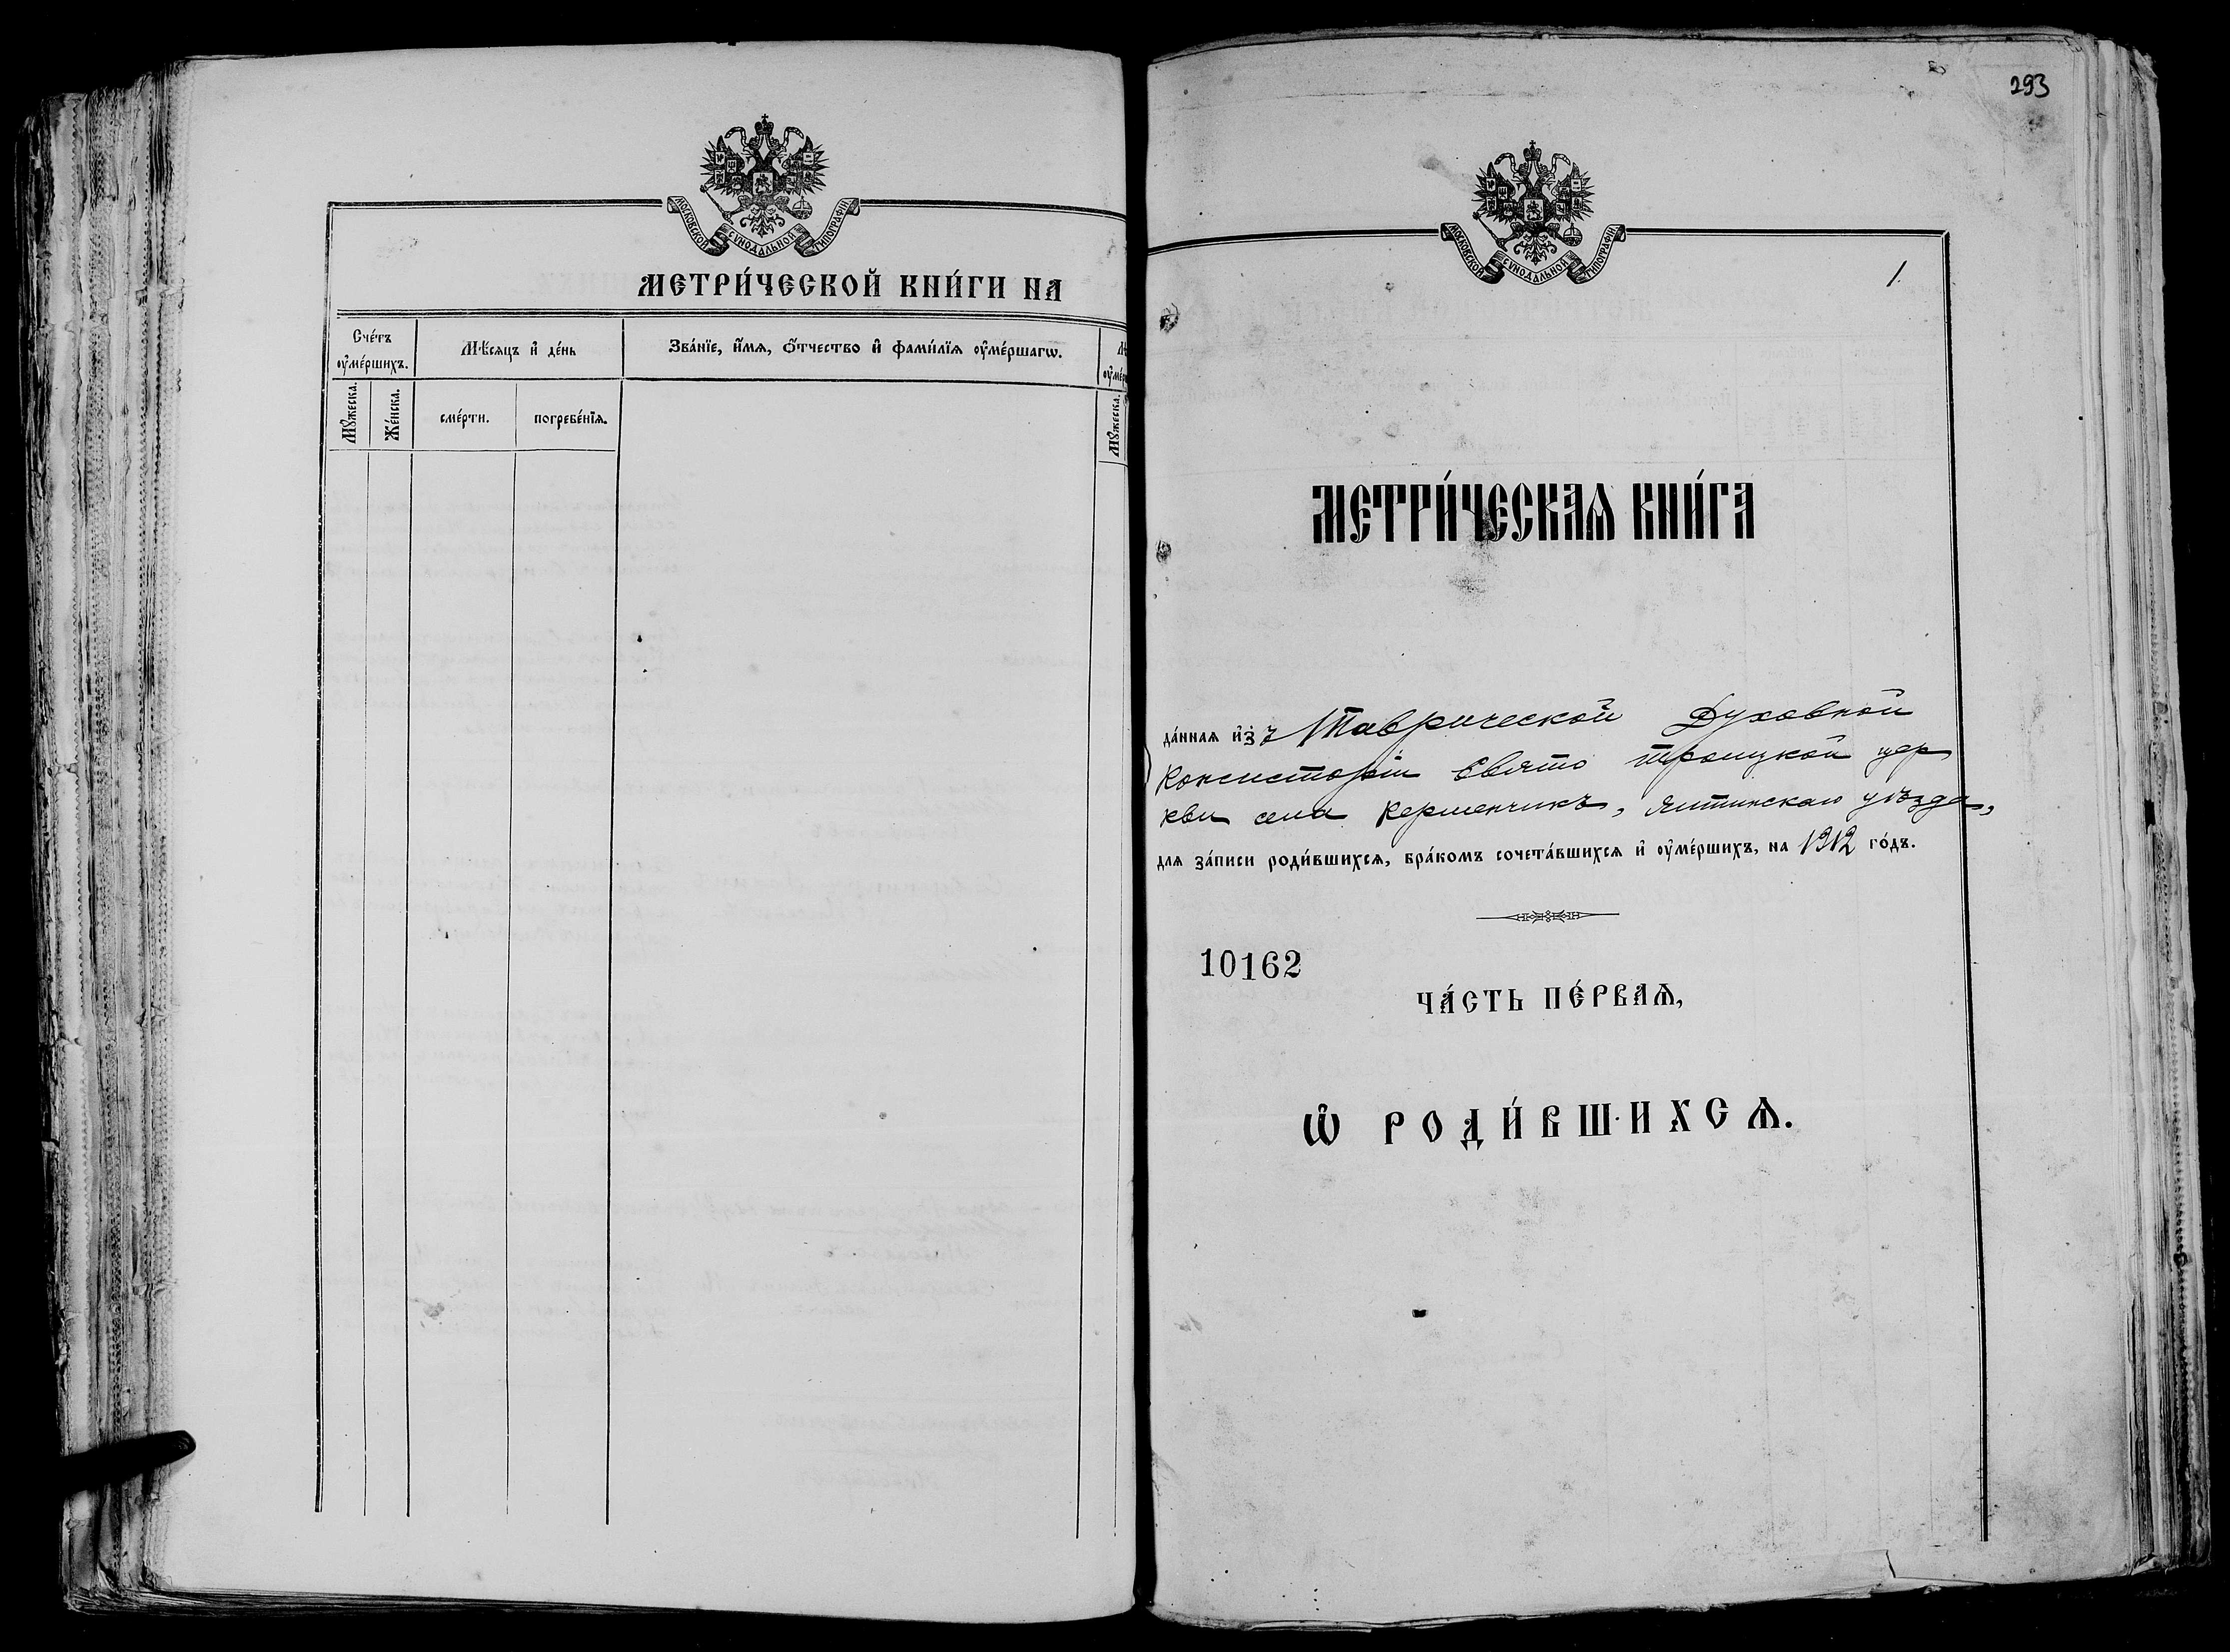 МОСКОВСКОЙ СѴНОДАЛЬНОЙ ТИПОГРАФІИ
МЕТРИ́ЧЕСКОЙ КНИ́ГИ НА
Сче́тъ
ᲂу҆ме́ршихъ.
Мѣ́сѧцъ и҆ де́нь
Зва́нїе, и҆́мѧ, ѻ҆́тчество и҆ фами́лїѧ ᲂу҆ме́ршагѡ.
Мꙋ́жеска.
Же́нска.
сме́рти.
погребе́нїѧ.
Мꙋ́жеска.
293
МОСКОВСКОЙ СѴНОДАЛЬНОЙ ТИПОГРАФІИ
1.
МЕТРИ́ЧЕСКАѦ КНИ́ГА
да́ннаѧ и҆зъ Таврической Духовной
Консисторіи Свято Троицкой цер
кви села Керменчикъ, Ялтинскаго уѣзда,
для за́писи роди́вшихсѧ, бра́комъ сочета́вшихсѧ и҆ ᲂу҆ме́ршихъ, на 1912 го́дъ.
10162
ЧА́СТЬ ПЕ́РВАѦ,
Ѡ҆ РОДИ́ВШИХСѦ.